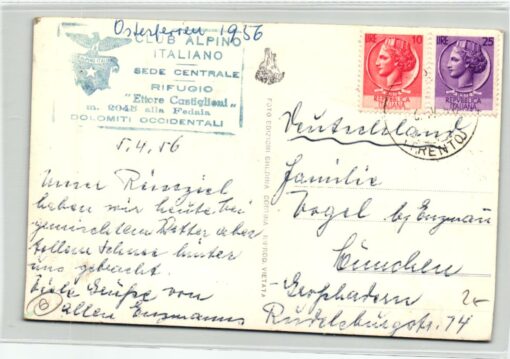 Osterferien 1956
CLUB ALPINO
ITALIANO
SEDE CENTRALE
RIFUGIO
"Ettore Castiglioni"
m. 2045 alla Fedaia
DOLOMITI OCCIDENTALI
5.4.56
Unser Reiseziel
haben wir heute bei
gemischtem Wetter aber
tollem Schnee hinter
uns gebracht.
Viele Grüße von
allen Enzmanns
LIRE 10
REPVBBLICA
ITALIANA
LIRE 25
REPVBBLICA
ITALIANA
(TRENTO)
FOTO EDIZIONI GHEDINA CORTINA
VIETATA
Deutschland
Familie
Vogel bei Enzmann
München
Großhadern
Rudelsburgstr. 74
2-